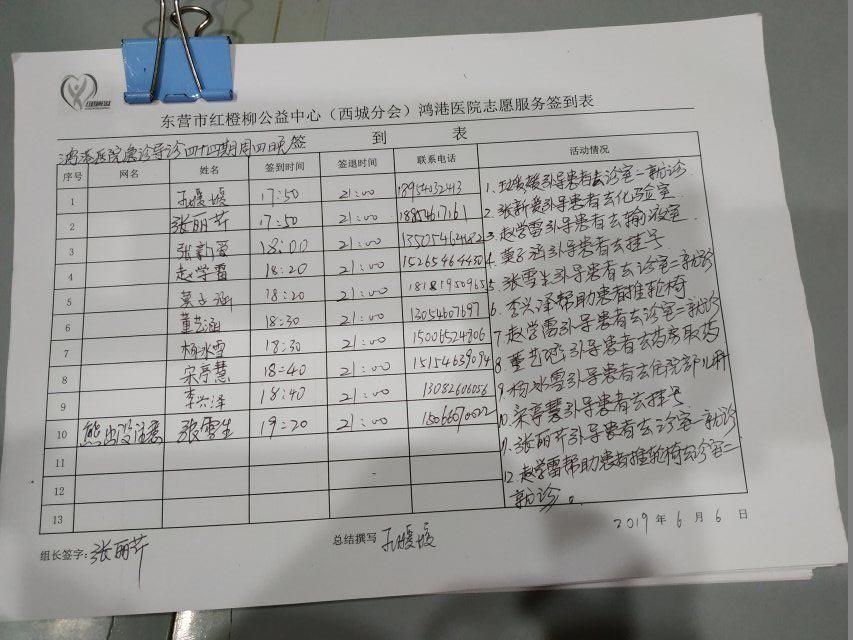 东营市红橙柳公益中心（西城分会）鸿港医院志愿服务签到表
鸿港医院急诊导诊四十四期周四晚 签到表
序号 网名 姓名 签到时间 签退时间 联系电话 活动情况
1 孔媛媛 17:50 21:00 18954032413
2 张丽芹 17:50 21:00 18854617161
3 张新爱 18:00 21:00 13505462482
4 赵学雷 18:20 21:00 15265464450
5 莫子涵 18:20 21:00 18181950965
6 董艺涵 18:30 21:00 13054607697
7 杨冰雪 18:30 21:00 15006524706
8 宋亭慧 18:40 21:00 15154639094
9 李兴泽 18:40 21:00 13082606056
10 熊出没注意 张雪生 19:20 21:00
11
12
13
1. 孔媛媛引导患者去诊室二就诊
2. 张新爱引导患者去化验室
3. 赵学雷引导患者去输液室
4. 莫子涵引导患者去挂号
5. 张雪生引导患者去诊室二就诊
6. 李兴泽帮助患者推轮椅
7. 赵学雷引导患者去诊室二就诊
8. 董艺涵引导患者去药房取药
9. 杨冰雪引导患者去住院部儿科
10. 宋亭慧引导患者去挂号
11. 张丽芹引导患者去诊室一就诊
12. 赵学雷帮助患者推轮椅去诊室二
就诊。
2019年6月6日
组长签字：张丽芹 总结撰写 孔媛媛